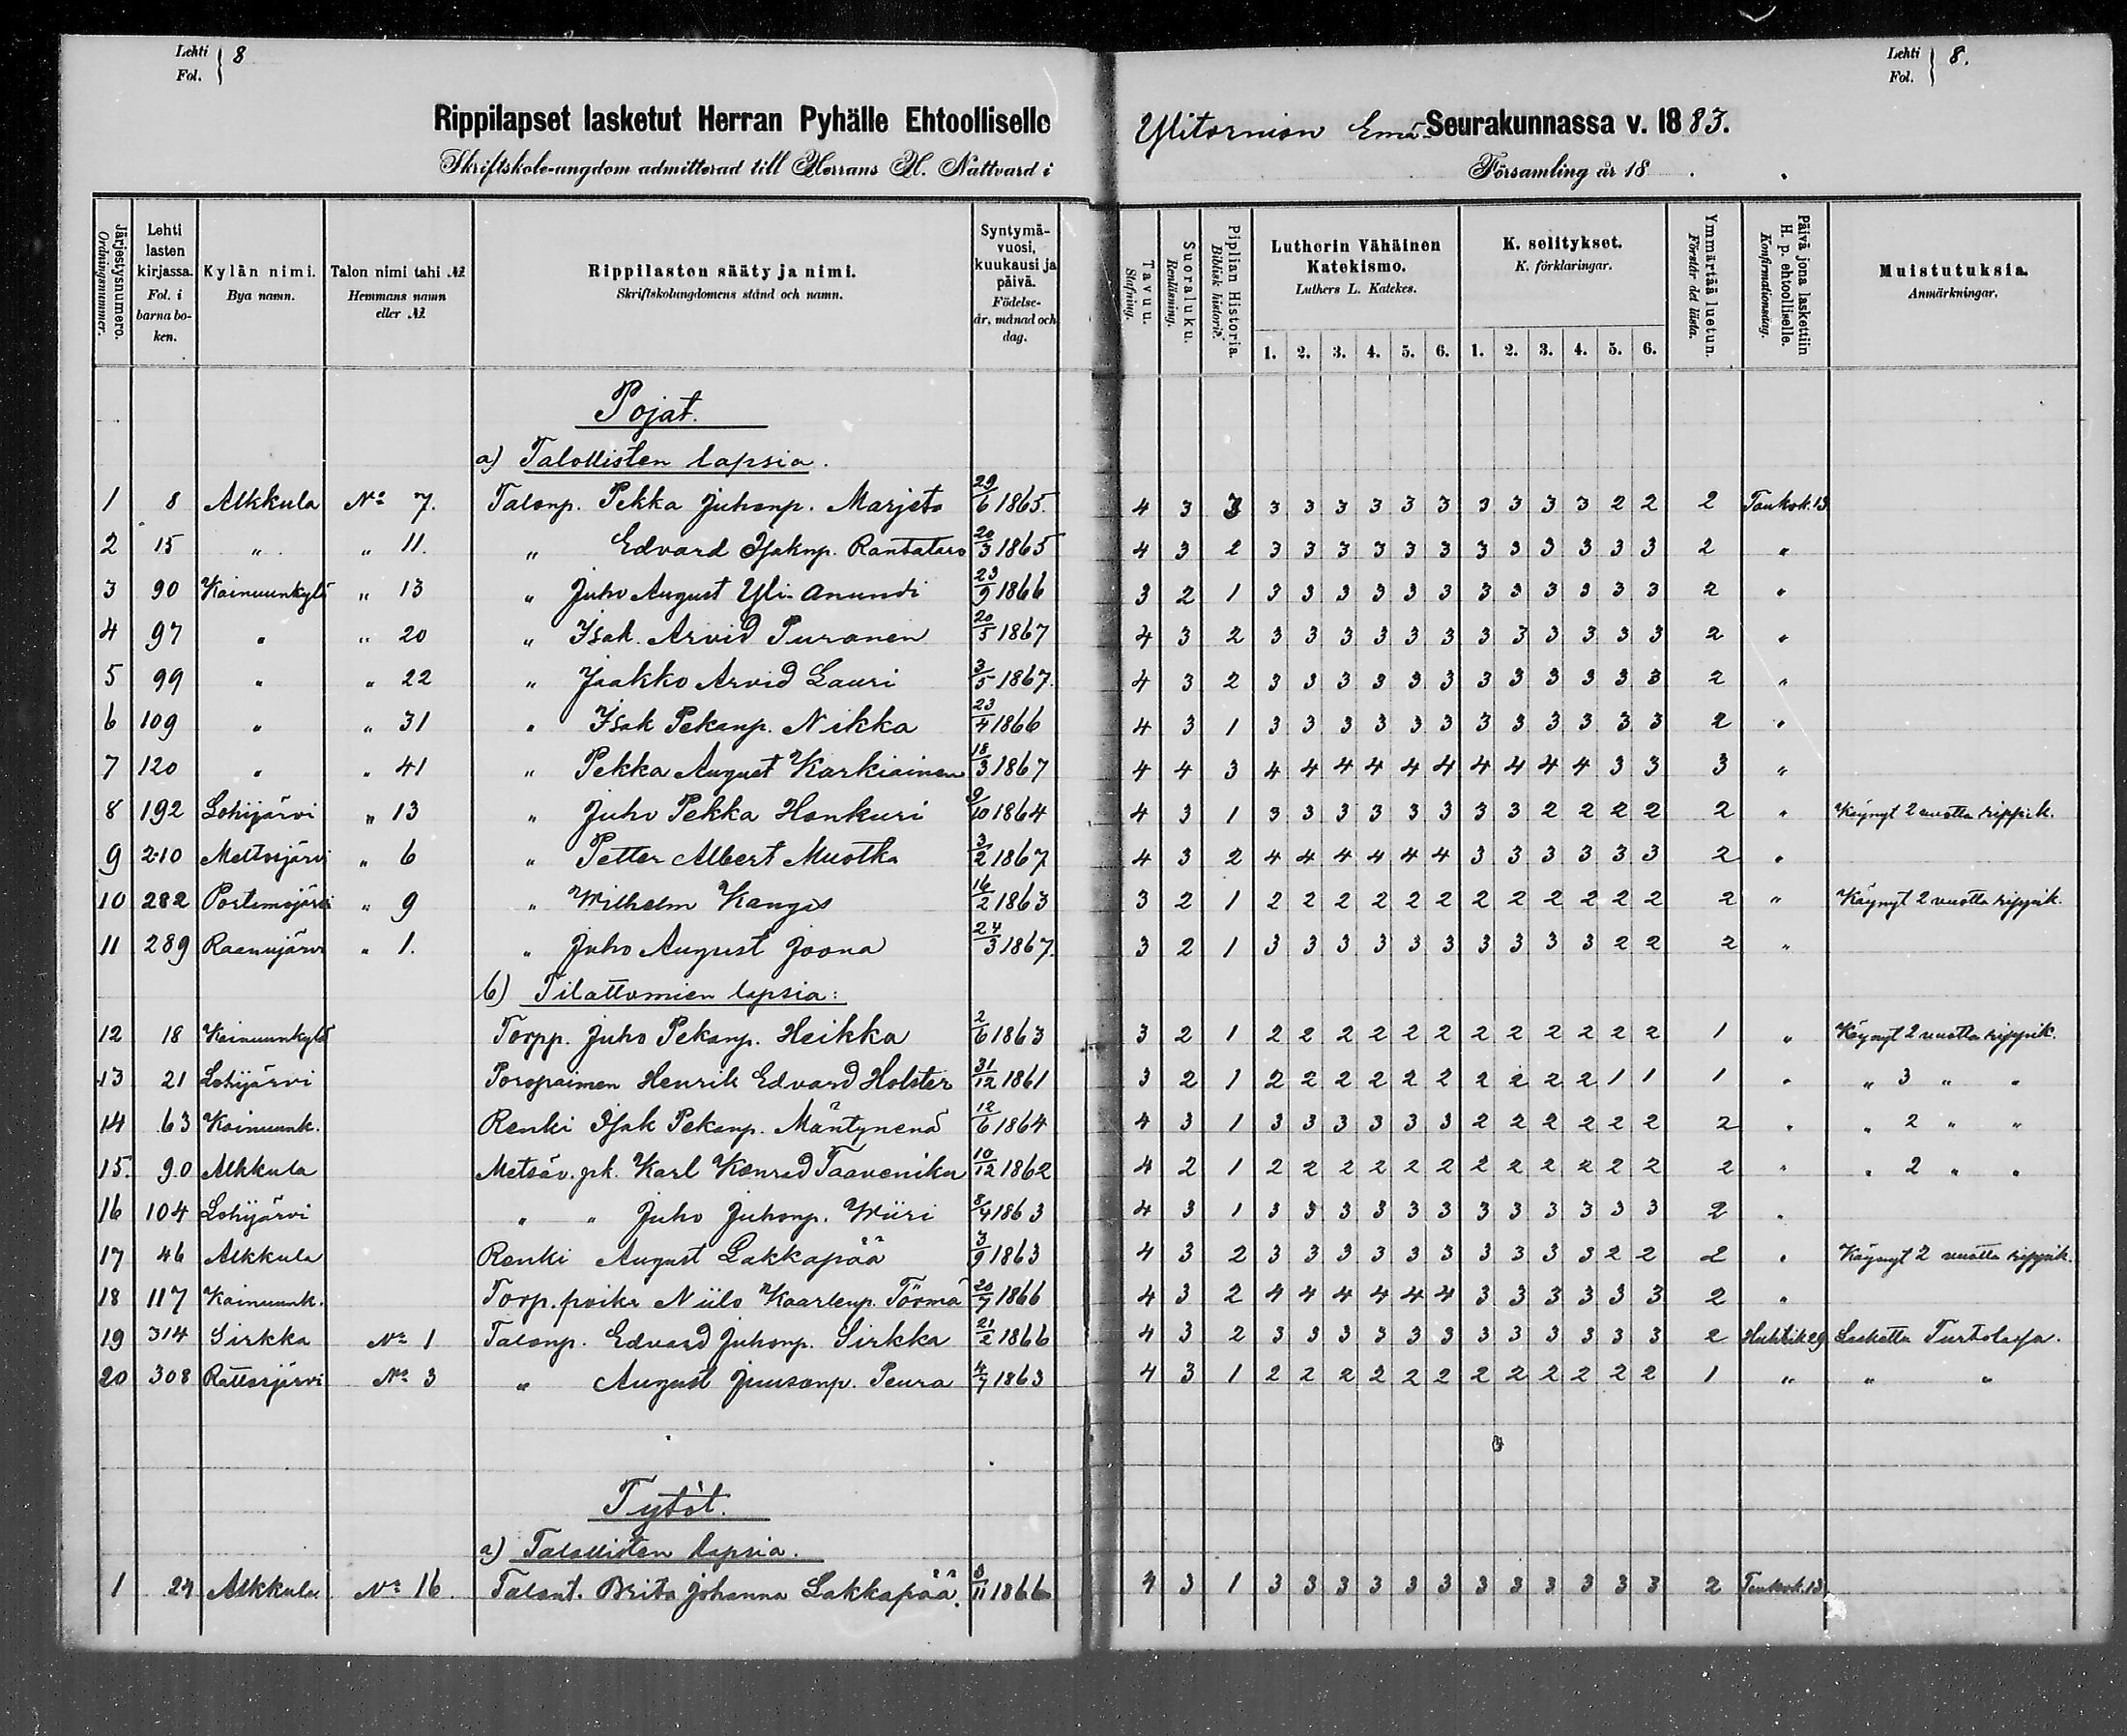 Lehti
Fol. } 8
Lehti
Fol. } 8.
Rippilapset lasketut Herran Pyhälle Ehtoolliselle Ylitornion Emä-Seurakunnassa v. 1883.
Skriftskole-ungdom admitterad till Herrans H. Nattvard i Församling år 18 .
Järjestysnumero. Ordningsnummer. | Lehti lasten kirjassa. Fol. i barna boken. | Kylän nimi. Bya namn. | Talon nimi tahi № Hemmans namn eller № | Rippilasten sääty ja nimi. Skriftskolungdomens stånd och namn. | Syntymävuosi, kuukausi ja päivä. Födelseår, månad och dag. | Tavuu. Stafning. | Suoraluku. Renläsning. | Piplian Historia. Biblisk historie. | Lutherin Vähäinen Katekismo. Luthers L. Katekes. 1. 2. 3. 4. 5. 6. | K. selitykset. K. förklaringar. 1. 2. 3. 4. 5. 6. | Ymmärtää luetun. Förstår det lästa. | Päivä jona laskettiin H. p. ehtoolliselle. Konfirmationsdag. | Muistutuksia. Anmärkningar.
Pojat.
a) Talollisten lapsia.
1 8 Alkkula No 7. Talonp. Pekka Juhonp. Marjeta 29/6 1865. 4 3 3 3 3 3 3 3 3 3 3 3 3 2 2 2 Toukok. 13
2 15 " " 11. " Edvard Isaknp. Rantatalo 20/3 1865 4 3 2 3 3 3 3 3 3 3 3 3 3 3 3 2 "
3 90 Kainuunkylä " 13 " Juho August Yli-Anundi 23/9 1866 3 2 1 3 3 3 3 3 3 3 3 3 3 3 3 2 "
4 97 " " 20 " Isak Arvid Puranen 20/5 1867 4 3 2 3 3 3 3 3 3 3 3 3 3 3 3 2 "
5 99 " " 22 " Jaakko Arvid Lauri 3/5 1867. 4 3 2 3 3 3 3 3 3 3 3 3 3 3 3 2 "
6 109 " " 31 " Isak Pekanp. Nikka 23/4 1866 4 3 1 3 3 3 3 3 3 3 3 3 3 3 3 2 "
7 120 " " 41 " Pekka August Karkiainen 18/3 1867 4 4 3 4 4 4 4 4 4 4 4 4 4 3 3 3 "
8 192 Lohijärvi " 13 " Juho Pekka Honkuri 9/10 1864 4 3 1 3 3 3 3 3 3 3 3 2 2 2 2 2 " Käynyt 2 vuotta rippik.
9 210 Meltosjärvi " 6 " Petter Albert Mustka 3/2 1867 4 3 2 4 4 4 4 4 4 3 3 3 3 3 3 2 "
10 282 Portimojärvi " 9 " Wilhelm Kangas 16/2 1863 3 2 1 2 2 2 2 2 2 2 2 2 2 2 2 2 " Käynyt 2 vuotta rippik.
11 289 Raanujärvi " 1. " Juho August Joona 24/3 1867. 3 2 1 3 3 3 3 3 3 3 3 3 3 2 2 2 "
b) Tilattomien lapsia:
12 18 Kainuunkylä Torpp. Juho Pekanp. Heikka 2/6 1863 3 2 1 2 2 2 2 2 2 2 2 2 2 2 2 1 " Käynyt 2 vuotta rippik.
13 21 Lohijärvi Poropaimen Henrik Edvard Holster 31/12 1861 3 2 1 2 2 2 2 2 2 2 2 2 2 1 1 1 " " 3 " "
14 63 Kainuunk. Renki Isak Pekanp. Mäntynenä 12/6 1864 4 3 1 3 3 3 3 3 3 2 2 2 2 2 2 2 " " 2 " "
15. 90 Alkkula Metsäv. pk. Karl Konrad Taaveniku 10/12 1862 4 2 1 2 2 2 2 2 2 2 2 2 2 2 2 2 " " 2 " "
16 104 Lohijärvi " " Juho Juhonp. Wiiri 8/4 1863 4 3 1 3 3 3 3 3 3 3 3 3 3 3 3 2 "
17 46 Alkkula Renki August Lakkapää 3/9 1863 4 3 2 3 3 3 3 3 3 3 3 3 3 2 2 2 " Käynyt 2 vuotta rippik.
18 117 Kainuunk. Torp. poika Niilo Kaarlenp. Törmä 20/7 1866 4 3 2 4 4 4 4 4 4 3 3 3 3 3 3 2 "
19 314 Sirkka No 1 Talonp. Edvard Juhonp. Sirkka 21/2 1866 4 3 2 3 3 3 3 3 3 3 3 3 3 3 3 2 Huhtik 29 Laskettu Turtolassa.
20 308 Rattosjärvi No 3 " August Juusonp. Peura 4/7 1863 4 3 1 2 2 2 2 2 2 2 2 2 2 2 2 1 " " "
Tytöt.
a) Talollisten lapsia.
1 24 Alkkula No 16 Talont. Brita Johanna Lakkapää. 3/11 1866 4 3 1 3 3 3 3 3 3 3 3 3 3 3 3 2 Toukok. 13